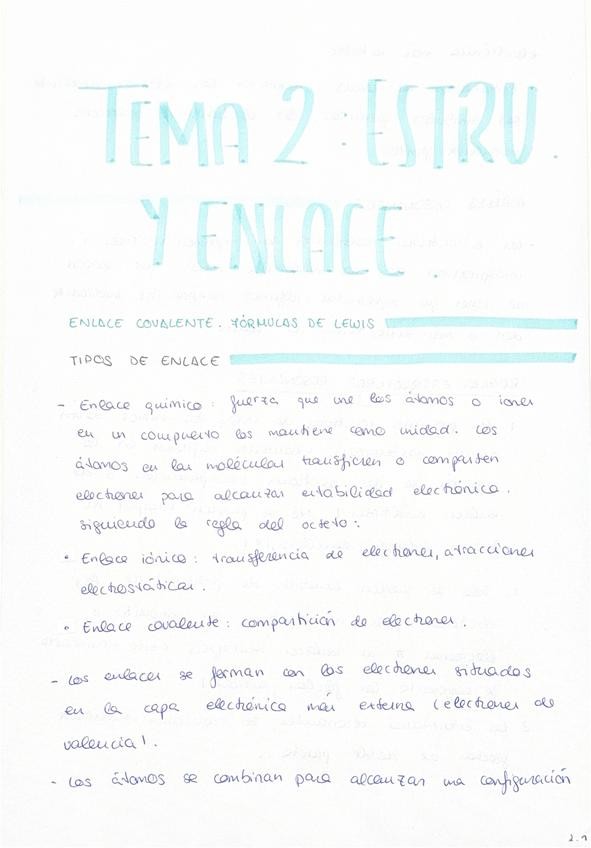 TEMA 2 : ESTRU.
Y ENLACE.
ENLACE COVALENTE. FÓRMULAS DE LEWIS
TIPOS DE ENLACE
- Enlace químico : fuerza que une los átomos o iones
en un compuerto los mantiene como unidad. Los
átomos en las moléculas transfieren o comparten
electrones para alcanzar estabilidad electrónica.
siguiendo la regla del octeto :
• Enlace iónico : transferencia de electrones, atracciones
electrostáticas.
• Enlace covalente : compartición de electrones.
- Los enlaces se forman con los electrones situados
en la capa electrónica más externa (electrones de
valencia).
- Los átomos se combinan para alcanzar una configuración
2.1